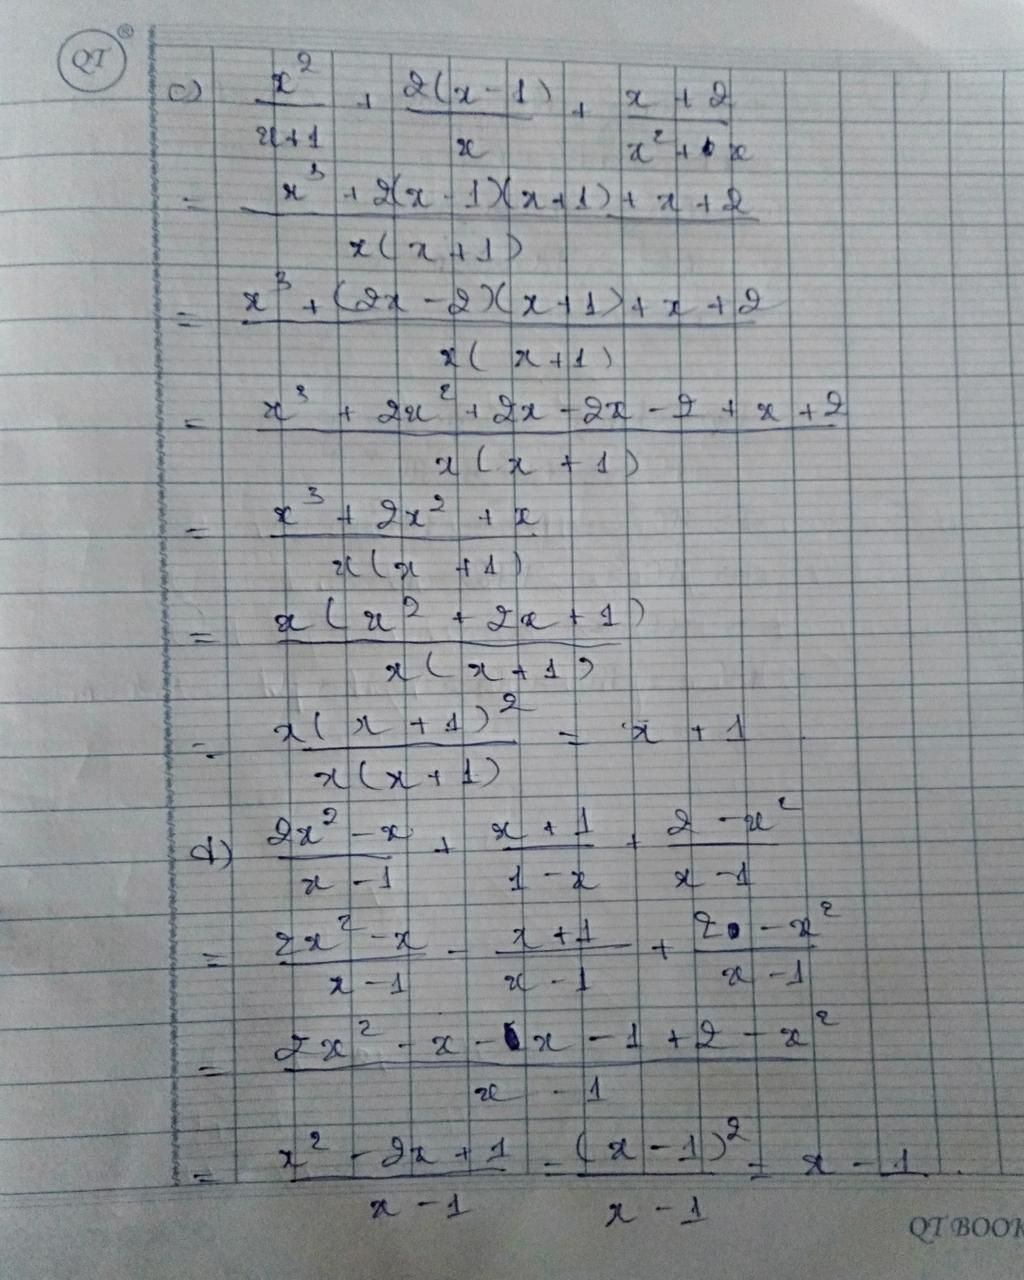 QT ®
c) x²/(x+1) + 2(x-1)/x + (x+2)/(x²+x)
= (x³ + 2(x-1)(x+1) + x + 2)/(x(x+1))
= (x³ + (2x-2)(x+1) + x + 2)/(x(x+1))
= (x³ + 2x² + 2x - 2x - 2 + x + 2)/(x(x+1))
= (x³ + 2x² + x)/(x(x+1))
= x(x² + 2x + 1)/(x(x+1))
= x(x+1)²/(x(x+1)) = x + 1
d) (2x² - x)/(x-1) + (x+1)/(1-x) + (2-x²)/(x-1)
= (2x² - x)/(x-1) - (x+1)/(x-1) + (2-x²)/(x-1)
= (2x² - x - x - 1 + 2 - x²)/(x-1)
= (x² - 2x + 1)/(x-1) = (x-1)²/(x-1) = x - 1
QT BOOK